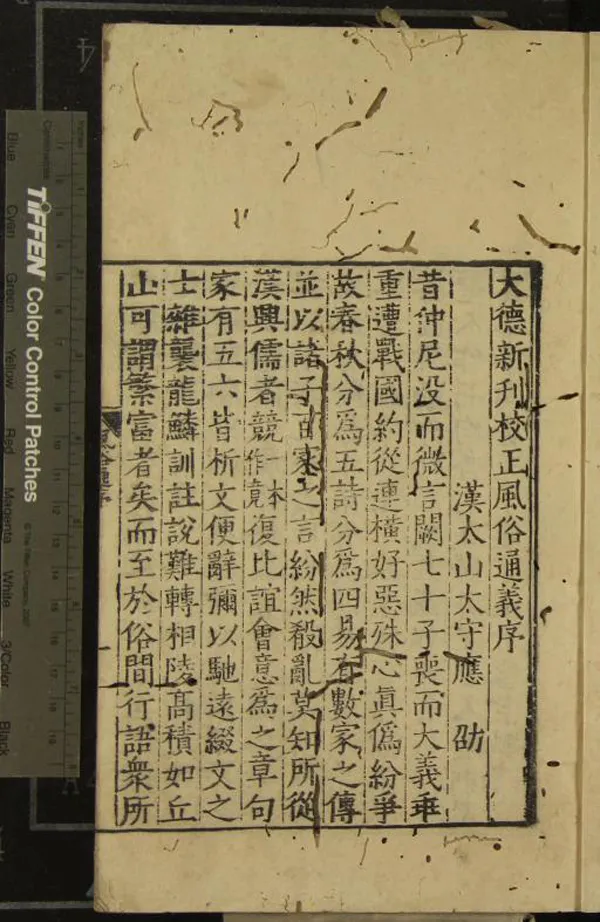 大德新刊校正風俗通義序
漢太山太守應 劭
昔仲尼没而微言闕七十子喪而大義乖
重遭戰國約從連橫好惡殊心真偽紛爭
故春秋分為五詩分為四易有數家之傳
並以諸子百家之言紛然殽亂莫知所從
漢興儒者競一作竟本復比誼會意為之章句
家有五六皆析文便辭彌以馳遠綴文之
士雜襲龍鱗訓註說難轉相陵高積如丘
山可謂繁富者矣而至於俗間行語衆所
TIFFEN Color Control Patches
Blue Cyan Green Yellow Red Magenta White 3/Color Black